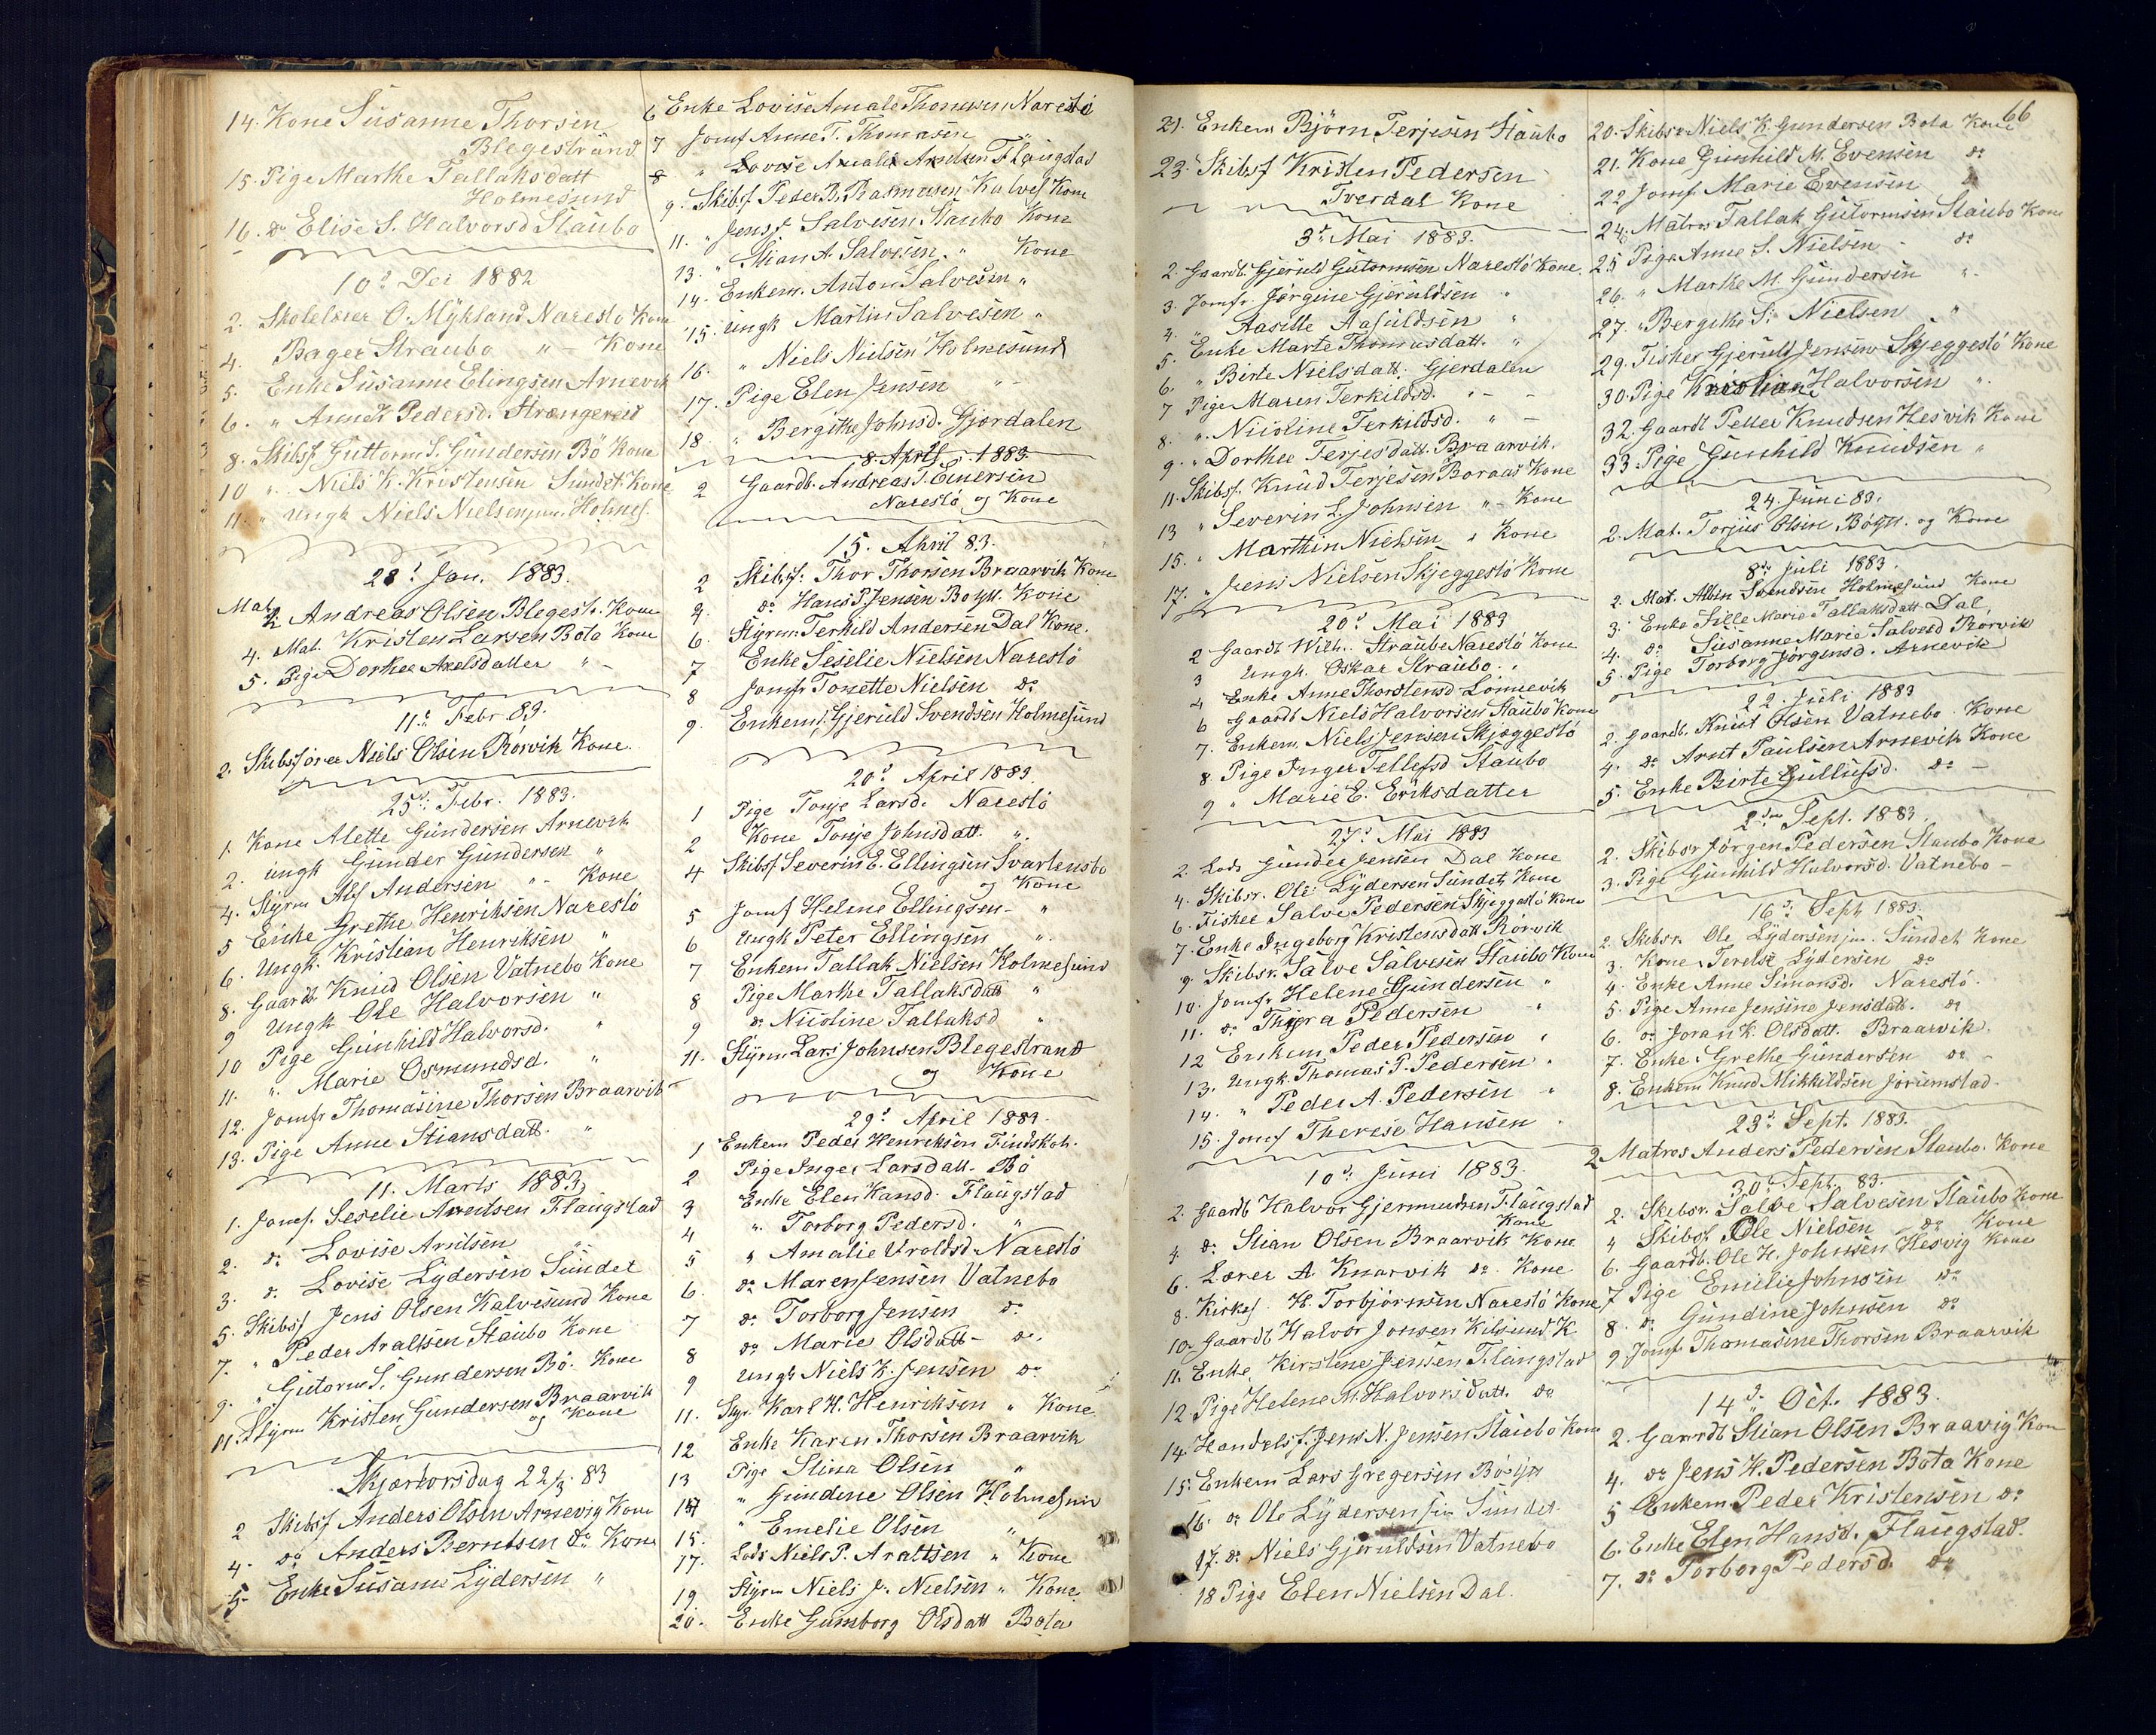 14. Kone Susanne Thorsen
Blegestrand
15. Pige Marthe Tallaksdatt
Holmesund
16. do Elise S. Halvorsd Staubo
10d Dec 1882
2. Skolelærer O. Mykland Narestö Kone
4. Bager Straubo " - Kone
5. Enke Susanne Elingsen Arnevik
6. " Anne K Pedersd. Strængereid
8. Skibsf Guttorm S. Gundersen Bö Kone
10 " Niels K. Kristensen Sundet Kone
11. " Ungk Niels Nielsen jun. Holmes.
28d Jan. 1883.
Mat. 2 Andreas Olsen Blegestr. Kone
4. Mat. Kristen Larsen Bota Kone
5. Pige Dorthea Axelsdatter " -
11d Febr 83.
2. Skibsförer Niels Olsen Rörvik Kone.
25d Febr. 1883.
1. Kone Alette Gundersen Arnevik
2. Ungk Gunder Gundersen "
4. Styrm Alf Andersen " - Kone
5 Enke Grethe Henriksen Narestö
6. Ungk. Kristian Henriksen "
8. Gaardb. Knud Olsen Vatnebo Kone
9 Ungk Ole Halvorsen "
10 Pige Gunhild Halvorsd. "
11. " Marie Osmundsd. "
12. Jomfr Thomasine Thorsen Braarvik
13. Pige Anne Stiansdatt. "
11. Marts 1883
1. Jomf. Seselie Arntsen Flaugstad
2. do Lovise Arntsen "
3. d. Lovise Lydersen Sundet
5. Skibsf Jens Olsen Kalvesund Kone
7. " Peder Araltsen Staubo Kone
9. " Gutorm S. Gundersen Bö. Kone
11. Styrm Kristen Gundersen Braarvik
og Kone
Skjærtorsdag 22/3 83
2 Skibsf Anders Olsen Arnevig Kone
4. do Anders Berntsen do Kone
5 Enke Susanne Lydersen "
6 Enke Lovise Amale Thomesen Narestö
7 Jomf Anne T. Thomasen "
8 " Lovise Amalie Arntsen Flaugstad
9. Skibsf Peder B. Rasmusen Kalves Kone
11. " Jens S. Salvesen Staubo Kone
13. " Stian A. Salvesen. " Kone
14. Enkem. Anton Salvesen "
15. Ungk Martin Salvesen "
16. " Niels Nielsen Holmesund
17. Pige Elen Jensen " -
18 " Bergithe Johnsd. Gjördalen
8 April 1883
2 Gaardb. Andreas T. Einersen
Narestö og Kone
15. April 83.
2 Skibsf. Thor Thorsen Braarvik Kone
4. do Hans P. Jensen Böyll. Kone
6. Styrm. Terkild Andersen Dal Kone.
7 Enke Seselie Nielsen Narestö
8 Jomfr Tonette Nielsen do
9. Enkem. Gjeruld Svendsen Holmesund
20d April 1883.
1 Pige Tonje Larsd. Narestö
2 Kone Tonje Johnsdatt. "
4 Skibsf Severin E. Ellingsen Svartensbo
og Kone
5 Jomf Helene Ellingsen - "
6 Ungk Peter Ellingsen "
7 Enkem Tallak Nielsen Holmesund
8 Pige Marthe Tallaksdatt "
9 do Nicoline Tallaksd "
11. Styrm Lars Johnsen Blegestrand
og Kone
29d April 1883.
1 Enkem Peder Henriksen Findskok.
2 Pige Inger Larsdatt. Bö
3 Enke Elen Hansd. Flaugstad
4 " Torborg Pedersd. "
5 " Amalie Uroldsd. Narestö
6. do Maren Jensen Vatnebo
7 do Torborg Jensen do
8 do Marie Olsdatt - do
9 Ungk Niels K. Jensen do
11. Styr. Karl H. Henriksen " Kone.
12 Enke Karen Thorsen Braarvik
13 Pige Stina Olsen "
14 " Gundine Olsen Holmesun
15. " Emelie Olsen "
17. Lods Niels P. Araltsen " Kone
19. Styrm Niels J. Nielsen " Kone
20. Enke Gunborg Olsdatt Bota
66
21. Enkem Björn Terjesen Staubo
23. Skibsf Kristen Pedersen
Tverdal Kone
3d Mai 1883.
2. Gaardb. Gjeruld Gutormsen Narestö Kone
3. Jomfr. Jörgine Gjeruldsen "
4. " Aasille Aasuldsen "
5. Enke Marte Thomasdatt. "
6. " Birte Nielsdatt. Gjerdalen
7 Pige Maren Terkildsd. " -
8. " Nicoline Terkildsd. " -
9. " Dorthee Terjesdatt. Braarvik.
11. Skibsf. Knud Terjesen Boraas Kone
13 " Severin L. Johnsen " - Kone
15. " Marthin Nielsen " Kone
17. " Jens Nielsen Skjeggestö Kone
20d Mai 1883
2 Gaardb Wilh. Straube Narestö Kone
3 Ungk. Oskar Straubo. "
4 Enke Anne Thorstensd Lönnevik
6 Gaardb Niels Halvorsen Staubo Kone
7. Enkem. Niels Jensen Skjæggestö
8 Pige Inger Tellefsd Staubo
9 " Marie E. Eriksdatter
27d Mai 1883
2. Lods Gunder Jensen Dal Kone
4. Skibsr. Ole Lydersen Sundet Kone
6. Fisker Salve Pedersen Skjeggestö Kone
7. Enke Ingeborg Kristensdatt Rörvik
9. Skibsr. Salve Salvesen Staubo Kone
10. Jomfr Helene Gundersen "
11. do Thora Pedersen "
12 Enkem. Peder Pedersen "
13. Ungk. Thomas P. Pedersen "
14. " Peder A. Pedersen "
15. Jomf Therese Hansen "
10d Juni 1883.
2. Gaardb Halvor Gjermundsen Flaugstad
Kone
4 do Stian Olsen Braarvik Kone
6. Lærer A. Knarvik do Kone
8. Kirkes. H. Torbjörnsen Narestö Kone
10. Gaardb Halvor Jonsen Kilsund K.
11. Enke Kirstine Jensen Flaugstad
12 Pige Helene M. Halvorsdatt. do
14. Handelsf. Jens N. Jensen Staubo Kone
15. Enkem Lars Gregersen Böyll
16. do Ole Lydersen sen Sundet
17. do Niels Gjeruldsen Vatnebo
18 Pige Elen Nielsen Dal.
20. Skibsr. Niels K. Gundersen Bota Kone
21. Kone Gunhild M. Evensen do
22 Jomfr Marie Evensen do
24. Matros Tallak Gutormsen Staubo Kone
25 Pige Anne S. Nielsen - do
26. " Marthe M. Gundersen "
27. " Bergithe S. Nielsen "
29. Fisker Gjeruld Jensen Skjeggestö Kone
30. Pige Kristiane Halvorsen "
32. Gaardb Peder Knudsen Hesvik Kone
33. Pige Gunhild Knudsen "
24. Juni 83.
2. Mat. Torjus Olsen Böyll. og Kone
8de Juli 1883.
2. Mat. Albin Svendsen Holmesund Kone
3. Enke Sille Marie Tallaksdatt Dal.
4. do Susanne Marie Salvesd Rörvik
5. Pige Torborg Jörgensd. Arnevik
22. Juli 1883
2. Gaardb. Knut Olsen Vatnebo Kone
4. do Arnt Paulsen Arnevik Kone
5. Enke Birte Gullufsd. do -
2den Sept. 1883.
2. Skibsr Jörgen Pedersen Staubo Kone
3. Pige Gunhild Halvorsd. Vatnebo -
16d Sept 1883.
2. Skibsr. Ole Lydersen jun. Sundet Kone
3. Kone Terelse Lydersen do
4. Enke Anne Simonsd. Narestö.
5. Pige Anne Jensine Jensdatt. do
6. do Joran K. Olsdatt. Braarvik.
7. Enke Grethe Gundersen do -
8. Enkem Knud Mikkildsen Jorumstad.
23d Sept. 1883.
2 Matros Anders Pedersen Staubo. Kone
30d Sept. 83.
2. Skibsr. Salve Salvesen Staubo Kone
4 Skibsf. Ole Nielsen do Kone
6. Gaardb. Ole H. Johnsen Hesvig Kone
7 Pige Emilie Johnsen do
8. do Gundine Johnsen do
9. Jomf Thomasine Thorsen Braarvik
14d Oct. 1883.
2. Gaardb Stian Olsen Braavig Kon
4. do Jens H. Pedersen Bota Kone
5 Enkem Peder Kristensen do
6. Enke Elen Hansd. Flaugstad.
7. do Torborg Pedersd. do